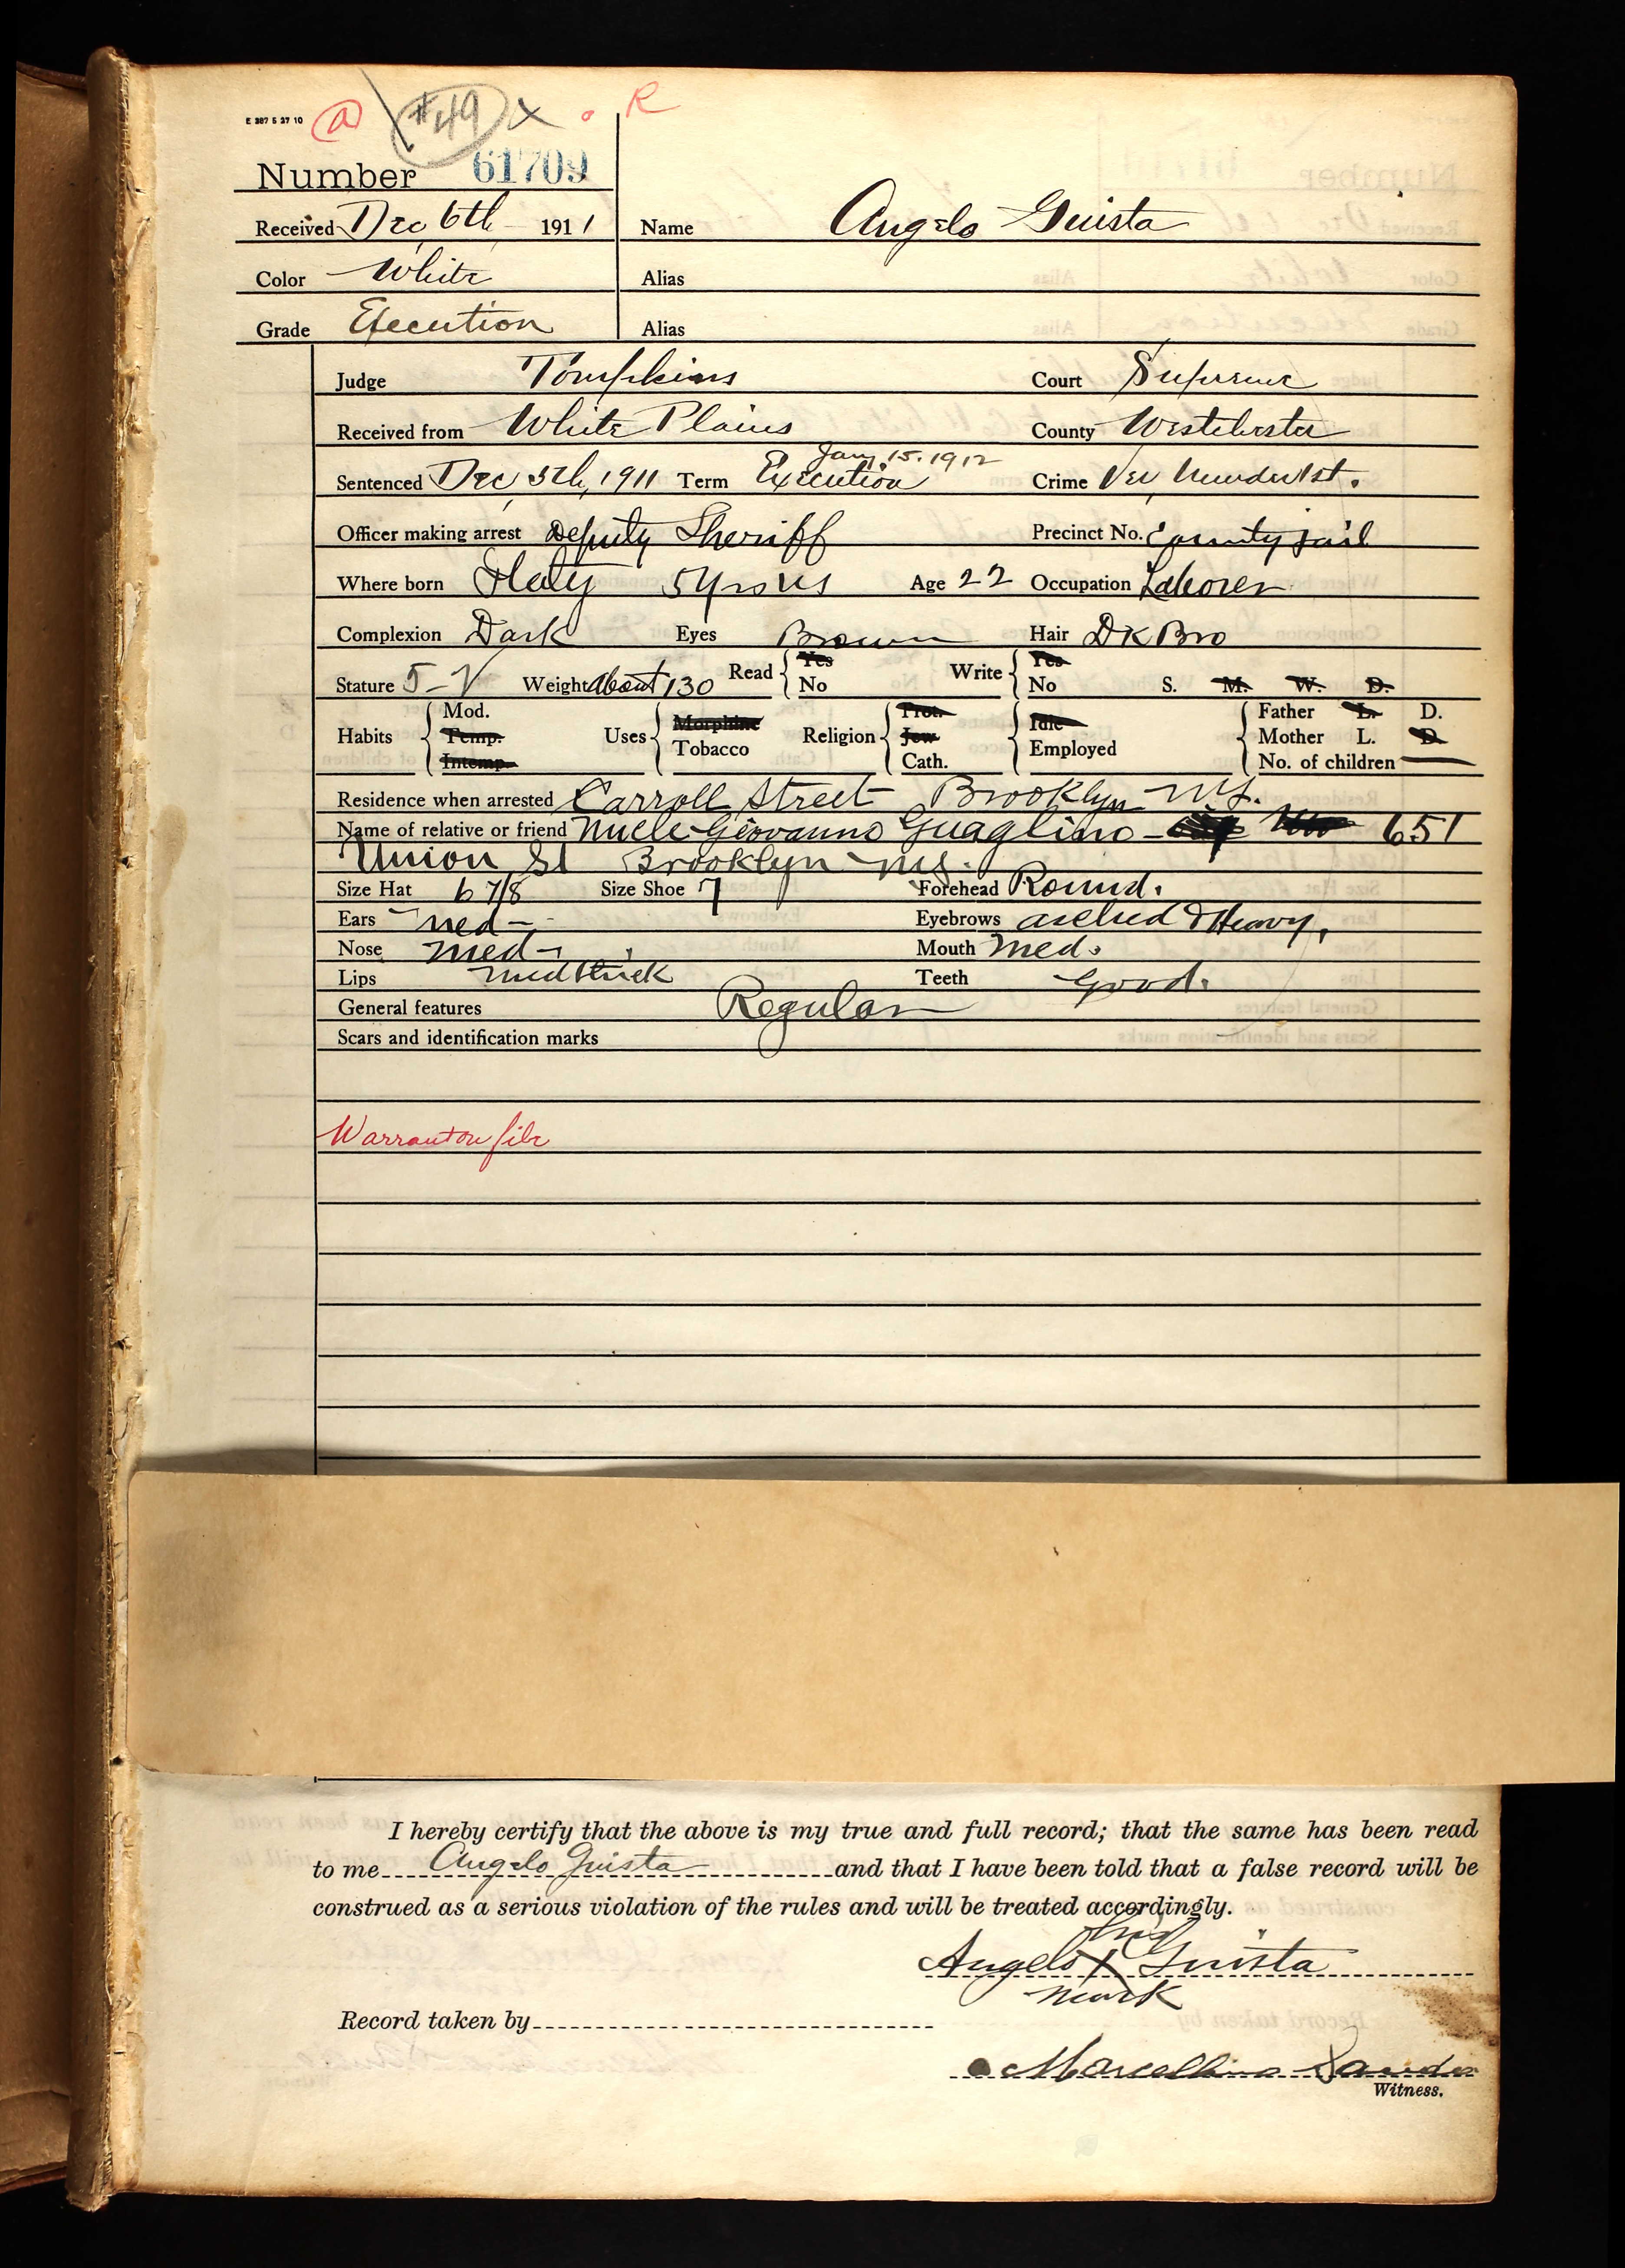 E 387 5 27 10 a #49 X R
Number 61709
Received Dec 6th 1911 Name Angelo Guista
Color White Alias
Grade Execution Alias
Judge Tompkins Court Supreme
Received from White Plains County Westchester
Jany. 15. 1912
Sentenced Dec 5th, 1911 Term Execution Crime Murder 1st.
Officer making arrest Deputy Sheriff Precinct No. County jail
Where born Italy 5 yrs US Age 22 Occupation Laborer
Complexion Dark Eyes Brown Hair Dk Bro
Stature 5- Weight about 130 Read { Yes No Write { Yes No S. M. W. D.
Habits { Mod. Temp. Intemp. Uses { Morphine Tobacco Religion { Prot. Jew Cath. { Idle Employed { Father L. D. Mother L. D. No. of children —
Residence when arrested Carroll Street Brooklyn N.Y.
Name of relative or friend Uncle Giovanno Guaglino 651
Union St Brooklyn N.Y.
Size Hat 6 7/8 Size Shoe 7 Forehead Round.
Ears Med- Eyebrows arched & Heavy,
Nose Med- Mouth Med.
Lips med thick Teeth Good.
General features Regular
Scars and identification marks
Warrant on file
I hereby certify that the above is my true and full record; that the same has been read
to me Angelo Guista and that I have been told that a false record will be
construed as a serious violation of the rules and will be treated accordingly.
his
Angelo X Guista
mark
Record taken by
Marcellino
Witness.